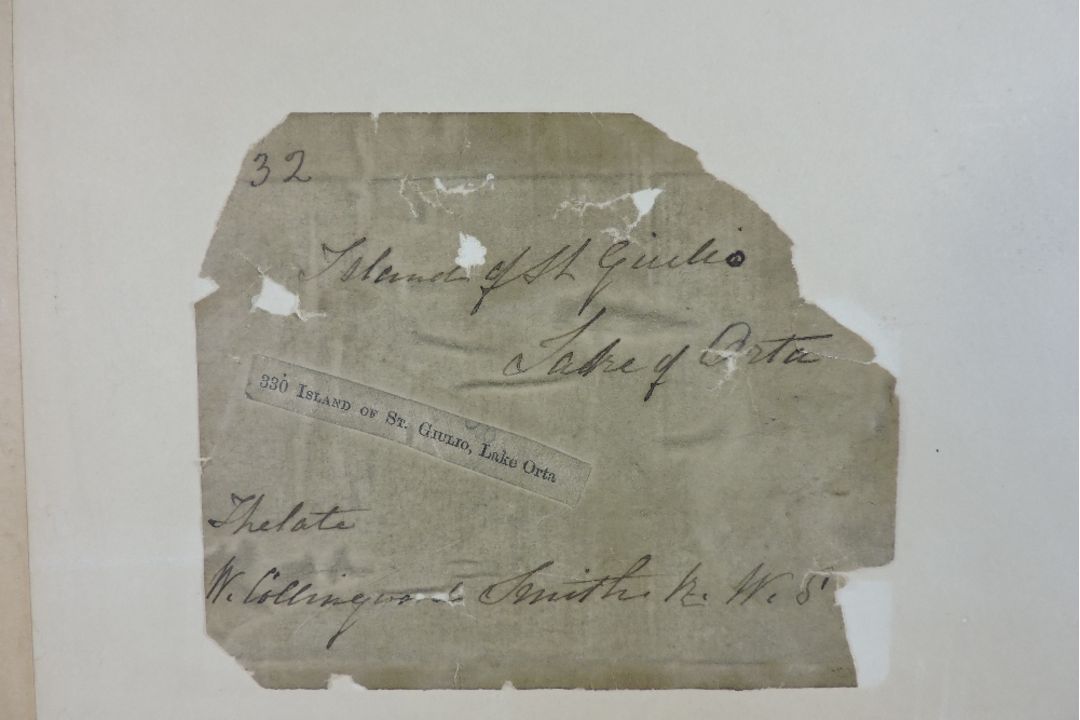 32
Island of St Giulio
Lake of Orta
330 Island of St. Giulio, Lake Orta
The late
W. Collingwood Smith R. W. S